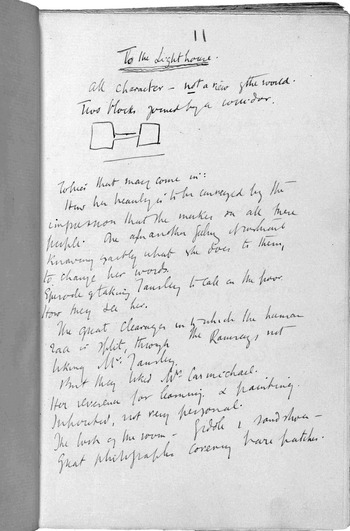 11
To the Lighthouse.
All character - not a view of the world.
Two blocks joined by a corridor.
Topics that may come in:
How her beauty is to be conveyed by the
impression that she makes on all these
people. One after another feeling it without
knowing exactly what she does to them,
to charge her words.
Episode of taking Tansley to call on the poor.
How they see her.
The great cleavages into which the human
race is split, through the Ramsays not
liking Mr. Tansley.
But they liked Mr Carmichael.
Her reverence for learning & painting.
Inhibited, not very personal.
The look of the room - fiddle & sand shoes -
Great photographs covering bare patches.